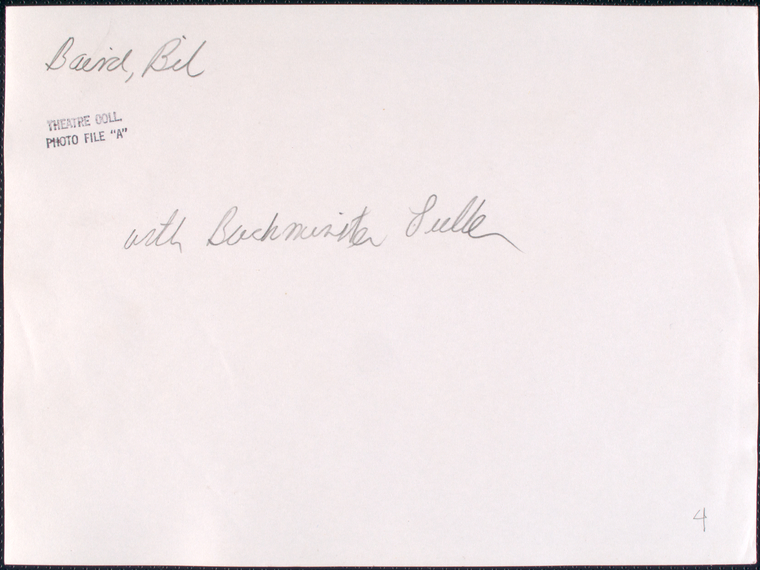 Baird, Bil
THEATRE COLL.
PHOTO FILE "A"
with Buckminster Fuller
4